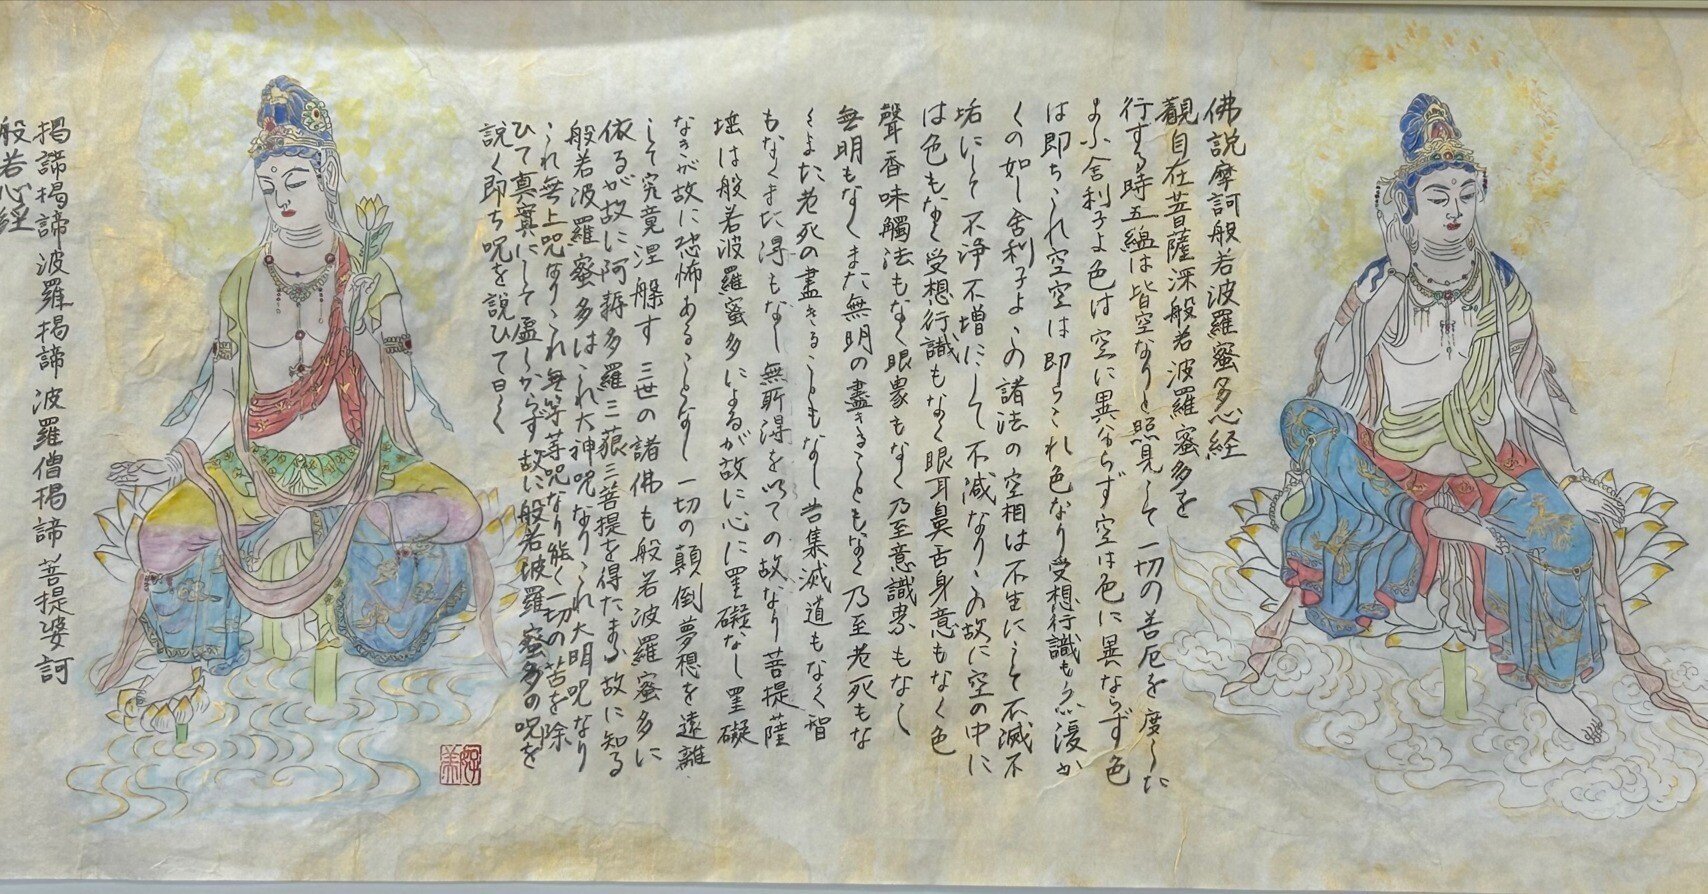 佛説摩訶般若波羅蜜多心経
觀自在菩薩深般若波羅蜜多を
行する時五蘊は皆空なりと照見して一切の苦厄を度した
まふ舎利子よ色は空に異ならず空は色に異ならず色
は即ちこれ空空は即ちこれ色なり受想行識も亦復か
くの如し舎利子よこの諸法の空相は不生にして不滅不
垢にして不浄不増にして不減なりこの故に空の中に
は色もなく受想行識もなく眼耳鼻舌身意もなく色
聲香味觸法もなく眼界もなく乃至意識界もなし
無明もなくまた無明の盡きることもなく乃至老死もな
くまた老死の盡きることもなし苦集滅道もなく智
もなくまた得もなし無所得を以ての故なり菩提薩
埵は般若波羅蜜多によるが故に心に罣礙なし罣礙
なきが故に恐怖あることなし一切の顛倒夢想を遠離
して究竟涅槃す三世の諸佛も般若波羅蜜多に
依るが故に阿耨多羅三藐三菩提を得たまふ故に知る
般若波羅蜜多はこれ大神呪なりこれ大明呪なり
これ無上呪なりこれ無等等呪なり能く一切の苦を除
ひて真實にして虚しからず故に般若波羅蜜多の呪を
説く即ち呪を説ひて曰く
揭諦揭諦波羅揭諦波羅僧揭諦菩提婆訶
般若心経